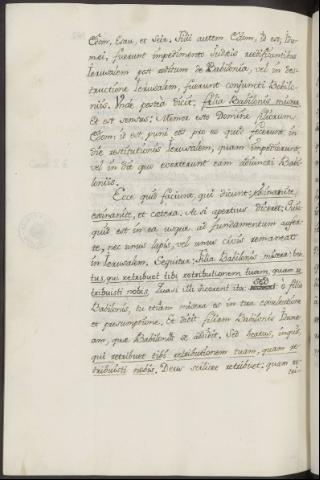 Edom, Esau, et Seir. Filii autem Edom, id est, Idu-
mei, fuerunt impedimento Iudeis reedificantibus
Ierusalem post reditum de Babilonia, vel in des-
tructione Ierusalem, fuerunt conjuncti Babilo-
niis. Unde postea dicit: filia Babilonis misera.
Et est sensus: Memor esto Domine filiorum
Edom, id est, puni eos pro eo quod fecerunt in
die restitutionis Ierusalem, quam impedierunt,
vel in die qua everterunt eam adiuncti Babi-
loniis.
Ecce quid faciunt, qui dicunt: exinanite,
exinanite, et cetera. Ac si apertius dicerent: Quid-
quid est in ea usque ad fundamentum aufer-
te, nec unus lapis, vel unus civis remaneat
in Ierusalem. Sequitur: Filia Babilonis misera: bea-
tus, qui retribuet tibi retributionem tuam, quam re-
tribuisti nobis. Quasi illi dicerent ita: Sed o filia
Babilonis, tu etiam misera es in tua exultatione
et presumptione. Et dicit filiam Babilonis Idume-
am, quia Babilonis se addidit. Sed beatus, inquit,
qui retribuet tibi retributionem tuam, quam re-
tribuisti nobis. Deus scilicet retribuet; quam re-
tri-